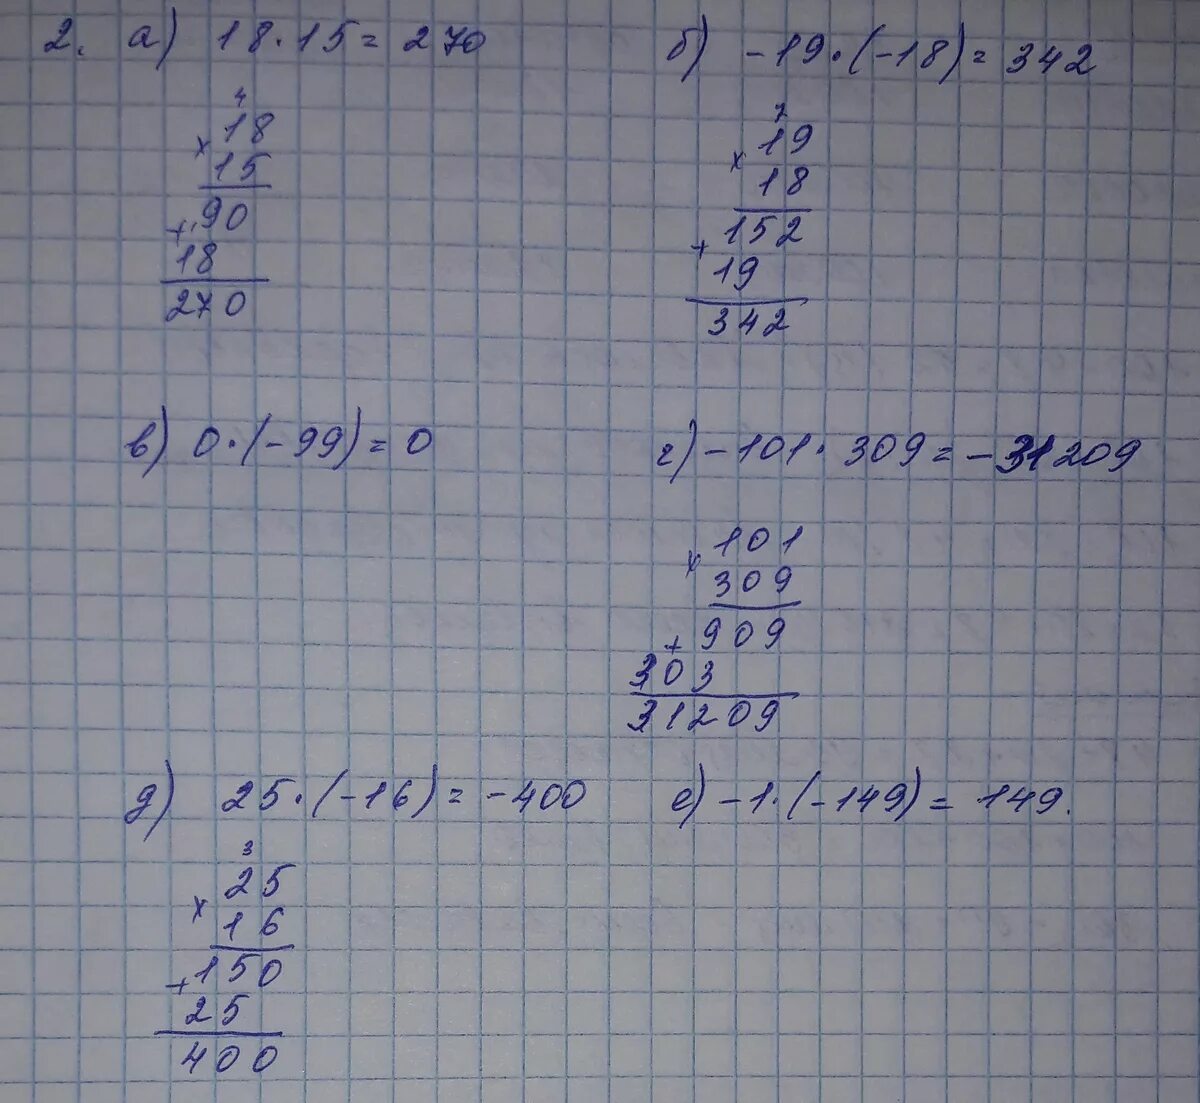 2. а) 18·15 = 270
4
18
×
15
90
+
18
270
б) -19·(-18) = 342
7
19
×
18
152
+
19
342
в) 0·(-99) = 0
г) -101·309 = -31209
101
×
309
909
+
303
31209
д) 25·(-16) = -400
3
25
×
16
150
+
25
400
е) -1·(-149) = 149.